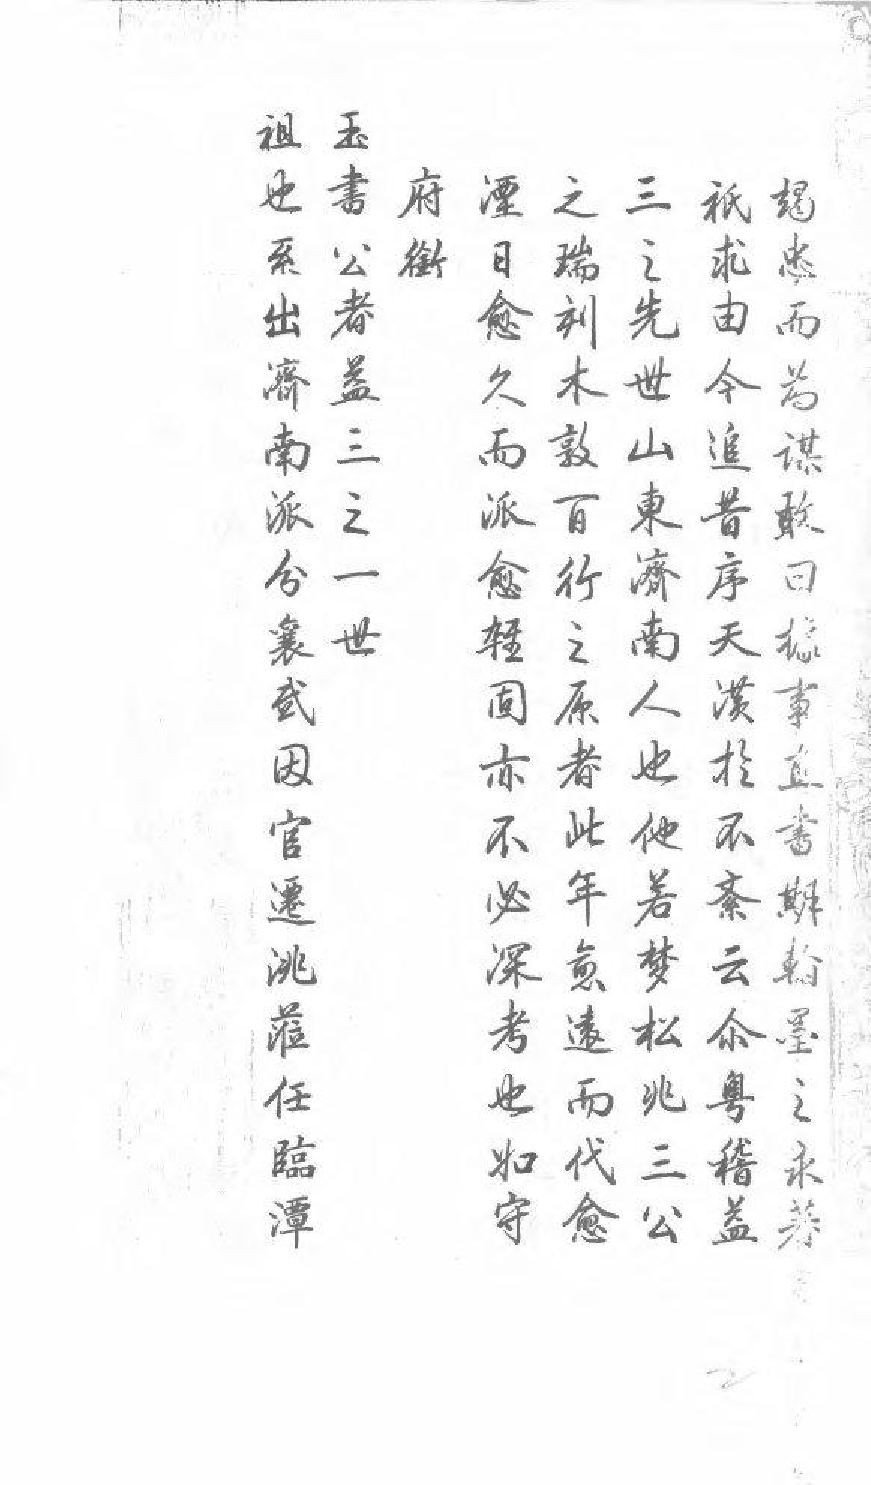 竭忠而為謀敢曰據事直書斯翰墨之永恭
祇求由今追昔序天潢於不紊云尒粤稽益
三之先世山東濟南人也他若梦松兆三公
之瑞刻木敦百行之原者此年愈遠而代愈
湮日愈久而派愈輕固亦不必深考也如守
府衛
玉書公者益三之一世
祖也系出濟南派分襄武因官遷洮蒞任臨潭
2